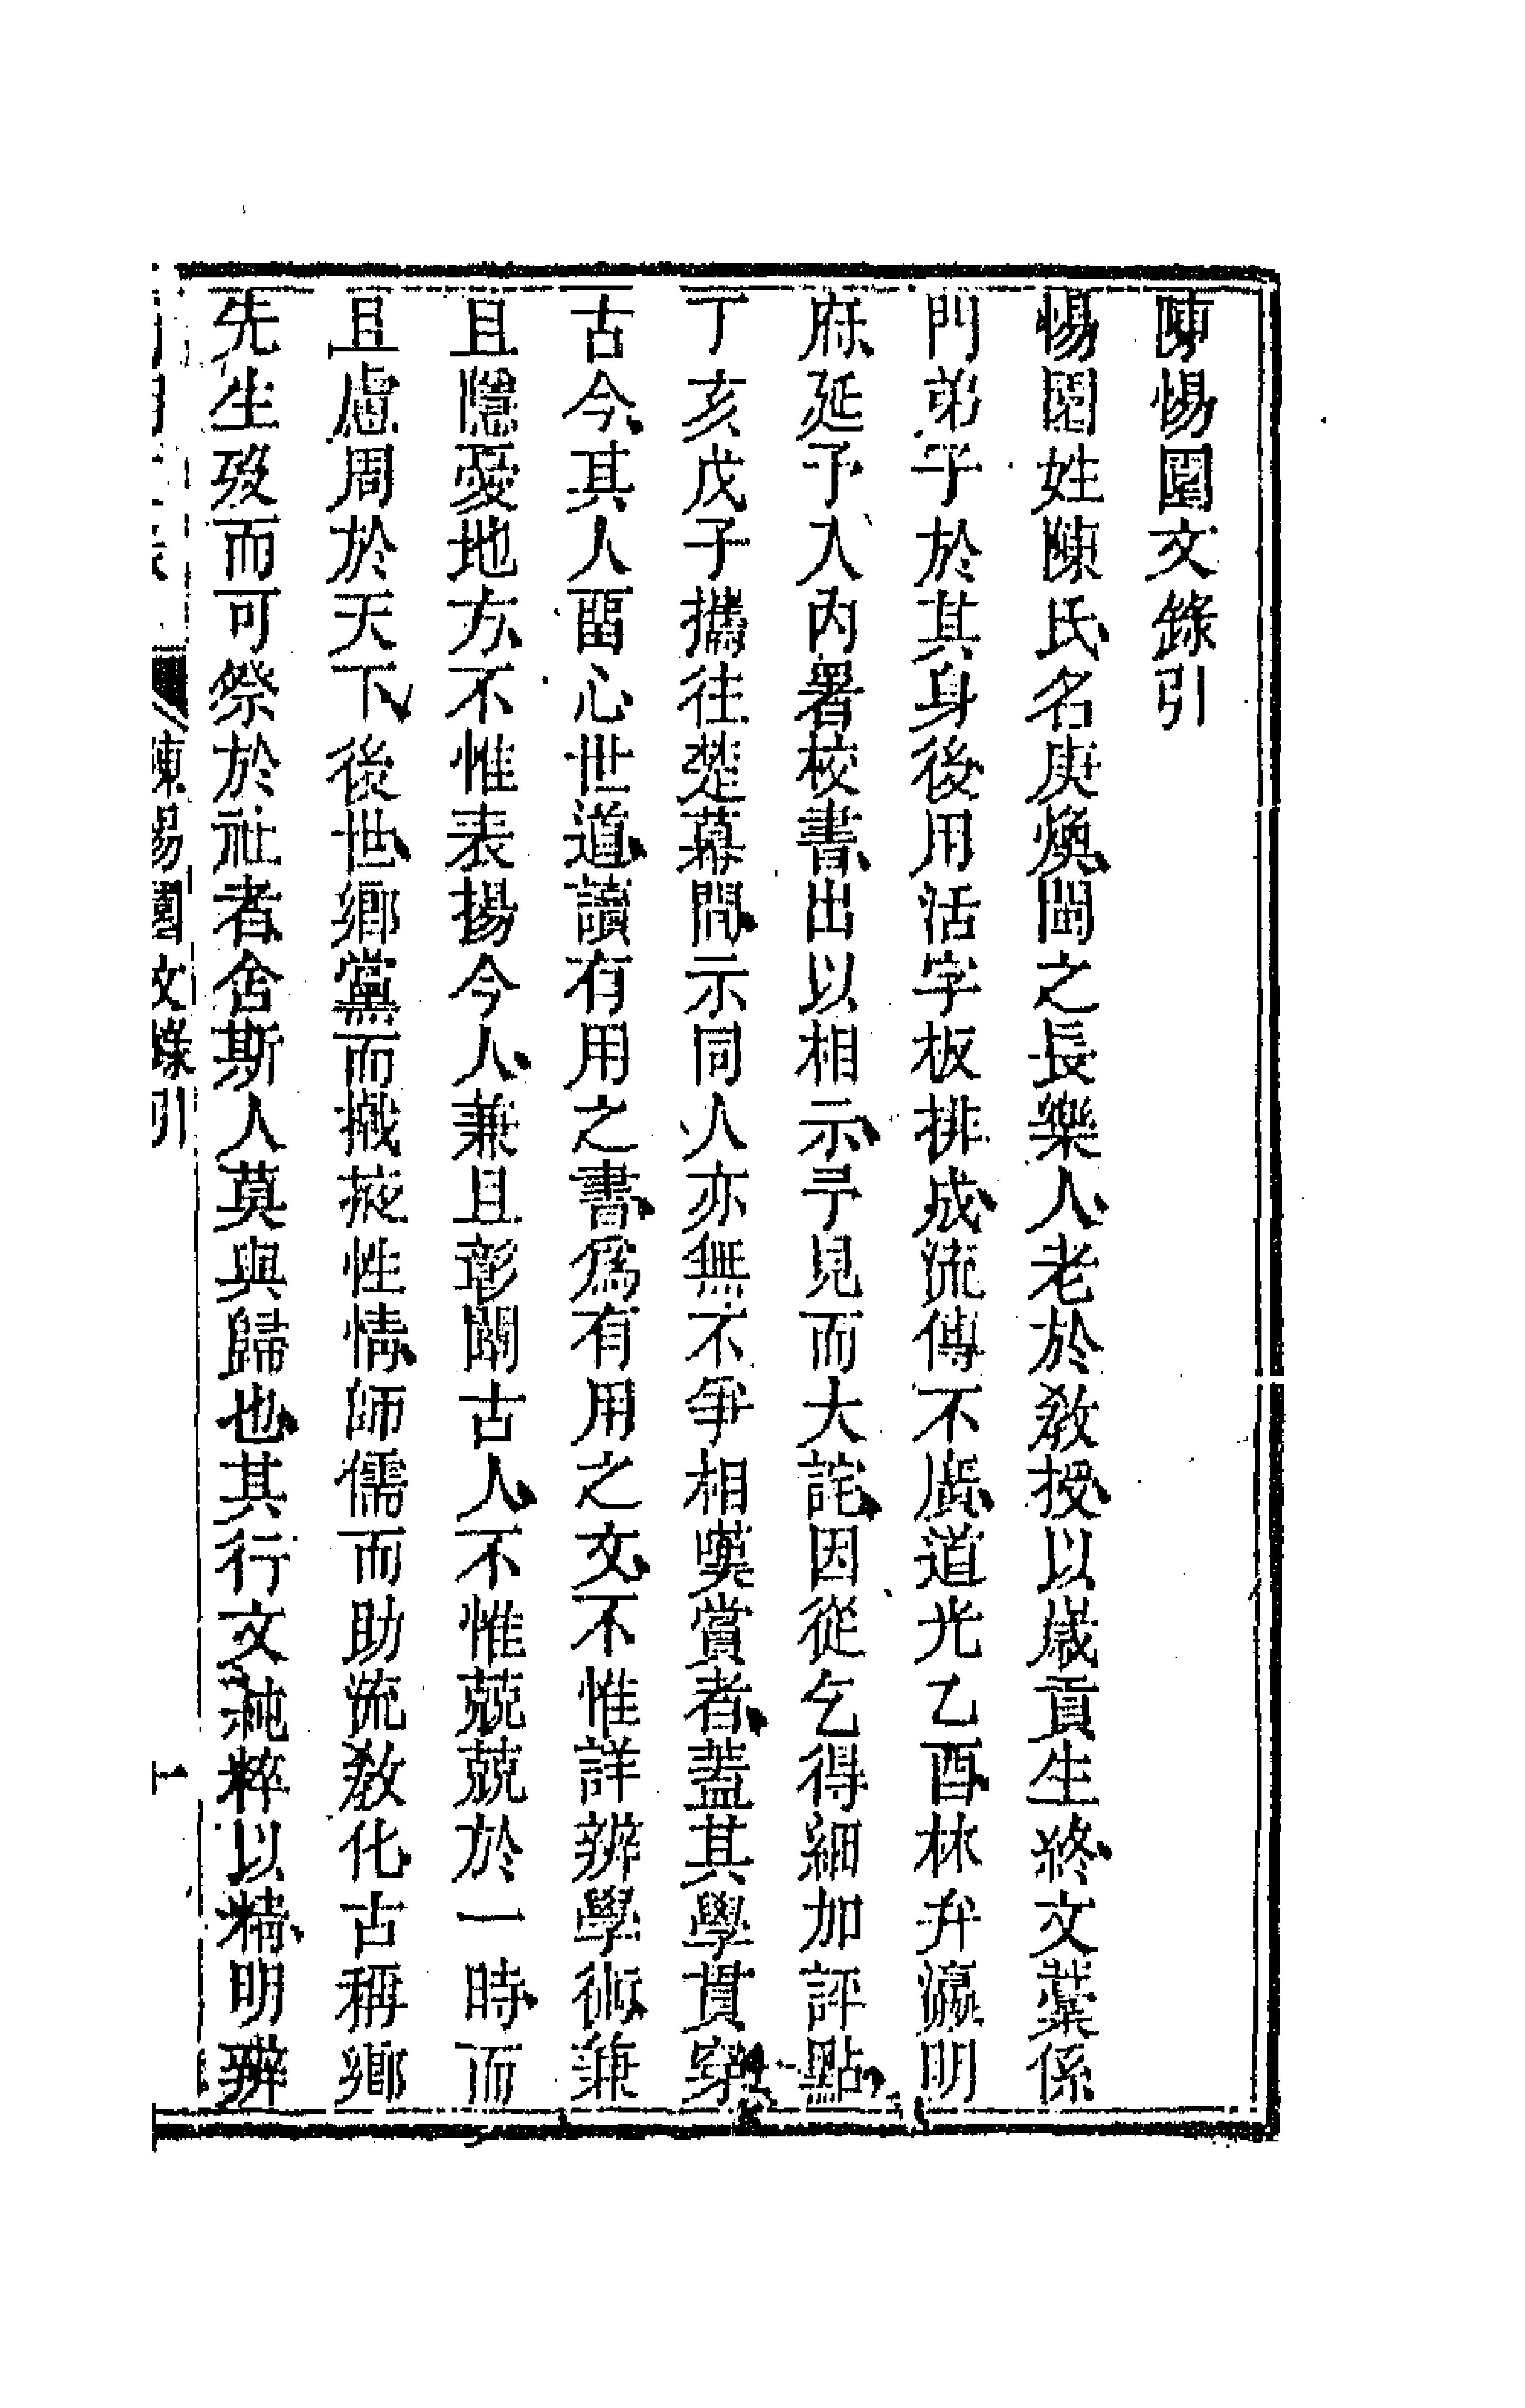 陳惕園文錄引
惕園姓陳氏名庚煥閩之長樂人老於教授以歲貢生終文藁係
門弟子於其身後用活字板排成流傳不廣道光乙酉林弁瀛明
府延予入內署校書出以相示予見而大詫因從乞得細加評點
丁亥戊子攜往楚幕間示同人亦無不爭相嘆賞者葢其學貫穿
古今其人畱心世道讀有用之書爲有用之文不惟詳辨學術兼
且隱憂地方不惟表揚今人兼且彰闡古人不惟兢兢於一時而
且慮周於天下後世鄉黨而摭㨂性情師儒而助流教化古稱鄉
先生歿而可祭於社者舍斯人莫與歸也其行文純粹以精明辨
陳惕園文錄引
一